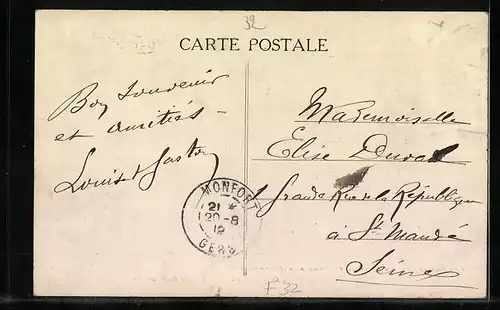 32
CARTE POSTALE
Bon souvenir
et amitiés
Louis & Gaston
Mademoiselle
Elise Duval
1 Grande Rue de la République
à St Mandé
Seine
MONFORT
21 *
20-8
12
GERS
F 32